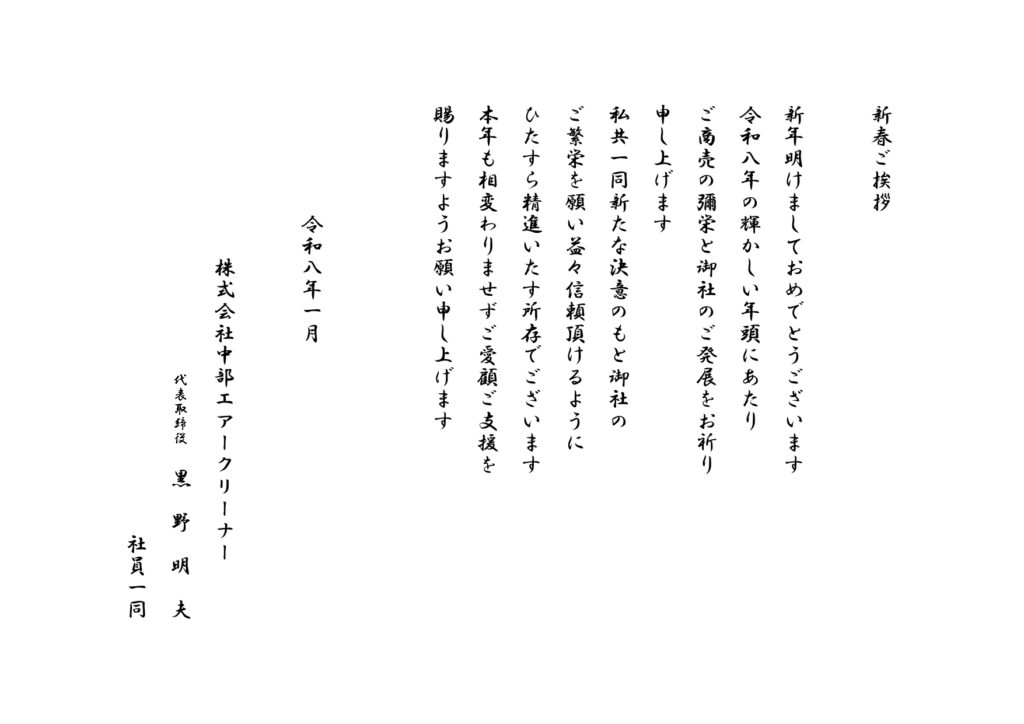 新春ご挨拶
新年明けましておめでとうございます
令和八年の輝かしい年頭にあたり
ご商売の彌栄と御社のご発展をお祈り
申し上げます
私共一同新たな決意のもと御社の
ご繁栄を願い益々信頼頂けるように
ひたすら精進いたす所存でございます
本年も相変わりませずご愛顧ご支援を
賜りますようお願い申し上げます
令和八年一月
株式会社中部エアークリーナー
代表取締役 黒野明夫
社員一同